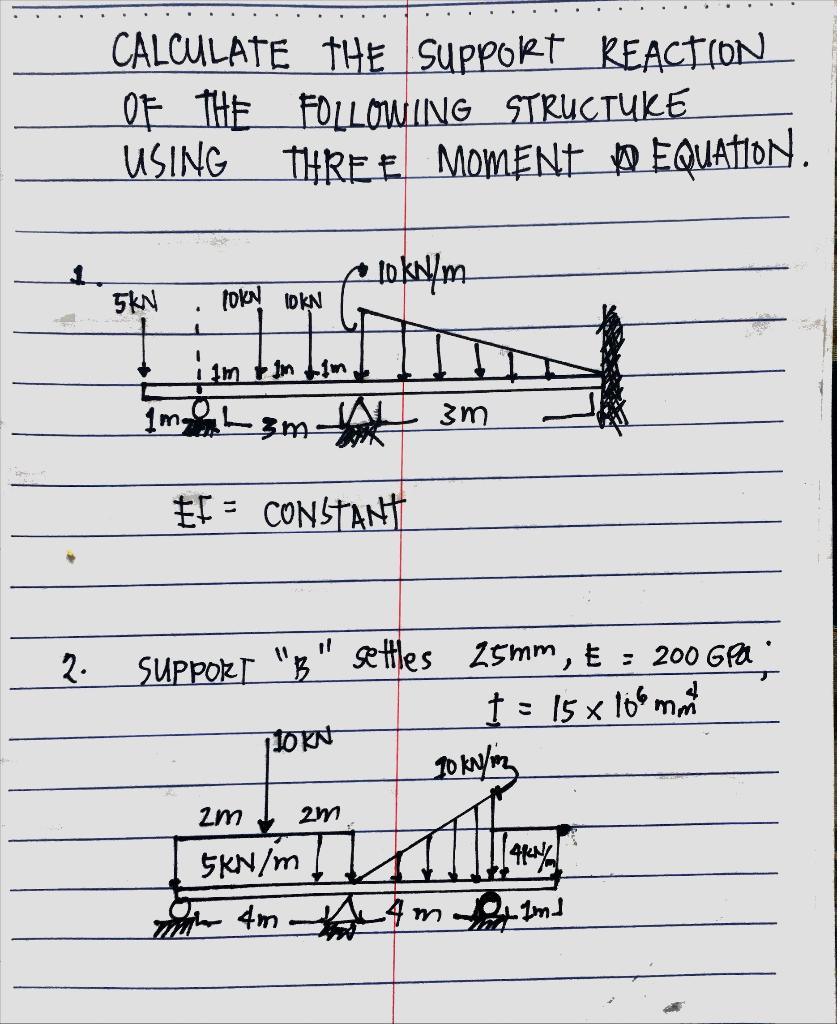 CALCULATE THE SUPPORT REACTION
OF THE FOLLOWING STRUCTURE
USING THREE MOMENT EQUATION.
1.
10kN/m
5kN 10kN 10kN
1m 1m 1m
1m 3m 3m
EI = CONSTANT
2. SUPPORT "B" settles 25mm, E = 200 GPa;
I = 15 x 10⁶ mm⁴
10 KN
10 kN/m
2m 2m
5KN/m 4kN/m
4m 4m 1m